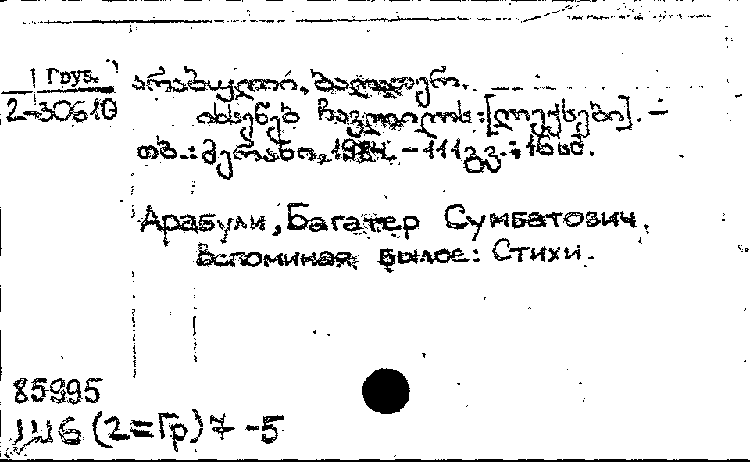 Груз.
2-30610
არაბული, ბაღათერ.
იხსენებ ჩავლილს: [ლექსები]. –
თბ.: მერანი, 1984. – 111 გვ.; 16 სმ.
Арабули, Багатер Сумбатович.
Вспоминая былое: Стихи.
85995
Ш6 (2=Гр) 7 -5